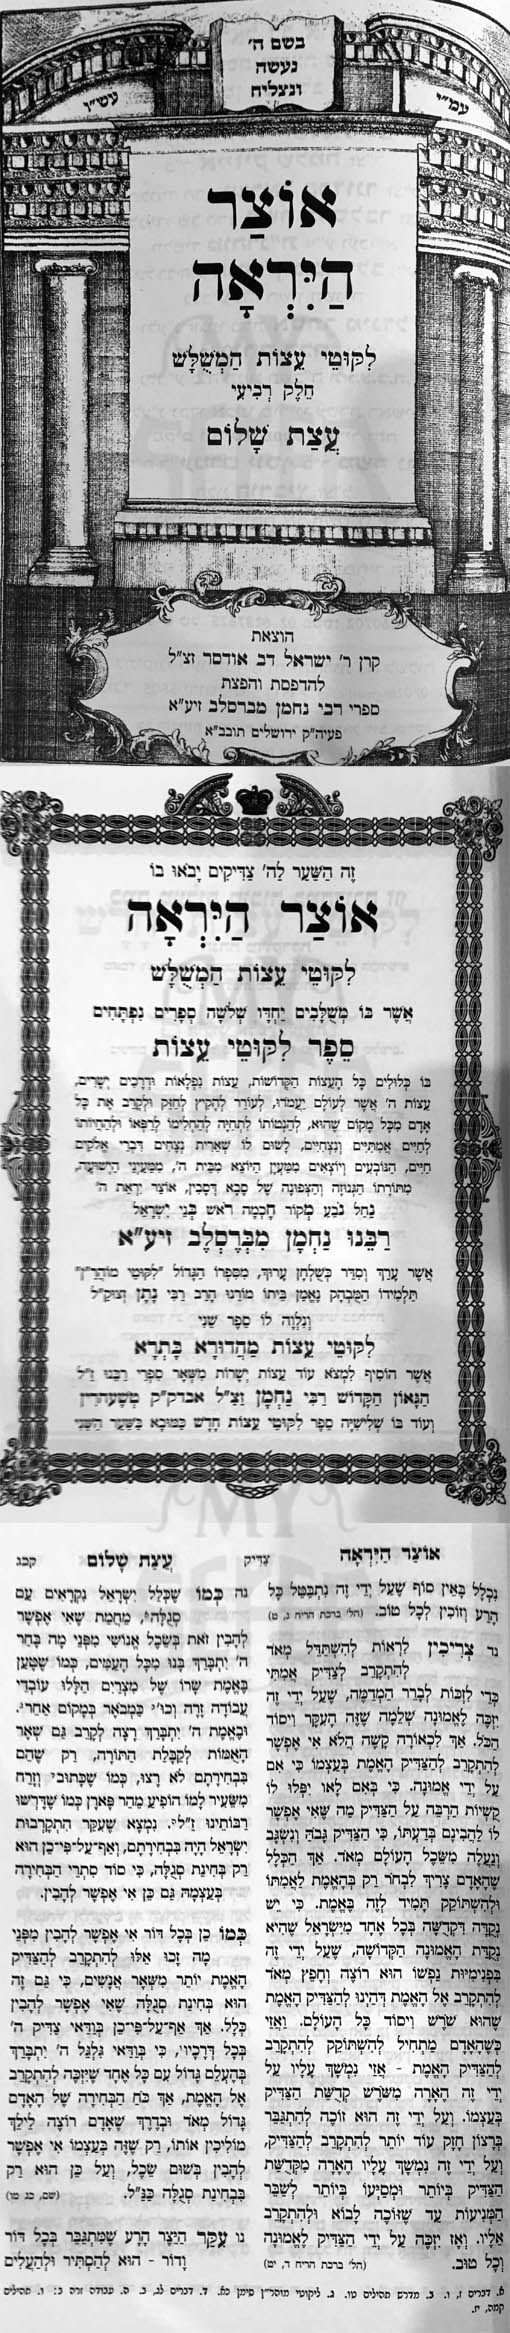 בשם ה'
נעשה
ונצליח
עמ"י
עשי"ו
אוֹצַר
הַיִּרְאָה
לִקּוּטֵי עֵצוֹת הַמְשֻׁלָּשׁ
חֵלֶק רְבִיעִי
עֲצַת שָׁלוֹם
הוצאת
קרן ר' ישראל דב אודסר זצ"ל
להדפסת והפצת
ספרי רבי נחמן מברסלב זיע"א
פעיה"ק ירושלים תובב"א
זֶה הַשַּׁעַר לַה' צַדִּיקִים יָבֹאוּ בוֹ
אוֹצַר הַיִּרְאָה
לִקּוּטֵי עֵצוֹת הַמְשֻׁלָּשׁ
אֲשֶׁר בּוֹ מְשֻׁלָּבִים יַחְדָּו שְׁלֹשָׁה סְפָרִים נִפְתָּחִים
סֵפֶר לִקּוּטֵי עֵצוֹת
בּוֹ כְּלוּלִים כָּל הָעֵצוֹת הַקְּדוֹשׁוֹת, עֵצוֹת נִפְלָאוֹת וּדְרָכִים יְשָׁרִים,
עֵצוֹת ה' אֲשֶׁר לְעוֹלָם יַעֲמֹדוּ, לְעוֹרֵר לְהָקִיץ לְחַזֵּק וּלְקָרֵב אֶת כָּל
אָדָם מִכָּל מָקוֹם שֶׁהוּא, לְהַטּוֹתוֹ לִתְחִיָּה לְהַחֲלִימוֹ לְרַפְּאוֹ וּלְהַחֲיוֹתוֹ
לְחַיִּים אֲמִתִּיִּים וְנִצְחִיִּים, לָשׂוּם לוֹ שְׁאֵרִית נְצָחִים דִּבְרֵי אֱלֹקִים
חַיִּים, הַנּוֹבְעִים וְיוֹצְאִים מִמַּעְיָן הַיּוֹצֵא מִבֵּית ה', מִמַּעַיְנֵי הַיְשׁוּעָה,
מִתּוֹרָתוֹ הַגְּנוּזָה וְהַצְּפוּנָה שֶׁל סָבָא דְסָבִין, אוֹצַר יִרְאַת ה'
נַחַל נֹבֵעַ מְקוֹר חָכְמָה רֹאשׁ בְּנֵי יִשְׂרָאֵל
רַבֵּנוּ נַחְמָן מִבְּרֶסְלֶב זיע"א
אֲשֶׁר עָרַךְ וְסִדֵּר כְּשֻׁלְחָן עָרוּךְ, מִסִּפְרוֹ הַגָּדוֹל "לִקּוּטֵי מוֹהֲרַ"ן"
תַּלְמִידוֹ הַמֻּבְהָק נֶאֱמַן בֵּיתוֹ מוֹרֵנוּ הָרַב רַבִּי נָתָן זצוק"ל
וְנִלְוָה לוֹ סֵפֶר שֵׁנִי
לִקּוּטֵי עֵצוֹת מַהֲדוּרָא בָּתְרָא
אֲשֶׁר הוֹסִיף לִמְצֹא עוֹד עֵצוֹת יְשָׁרוֹת מִשְּׁאָר סִפְרֵי רַבֵּנוּ זַ"ל
הַגָּאוֹן הַקָּדוֹשׁ רַבִּי נַחְמָן זַצַ"ל אבדק"ק טשעהרין
וְעוֹד בּוֹ שְׁלִישִׁיָּה סֵפֶר לִקּוּטֵי עֵצוֹת חָדָשׁ כַּמּוּבָא בַּשַּׁעַר הַשֵּׁנִי
אוֹצַר הַיִּרְאָה צַדִּיק עֲצַת שָׁלוֹם קכג
נִכְלָל בָּאֵין סוֹף שֶׁעַל יְדֵי זֶה נִתְבַּטֵּל כָּל
הָרַע וְזוֹכִין לְכָל טוֹב. (הל' ברכת הריח ג, ט)
נד צְרִיכִין לִרְאוֹת לְהִשְׁתַּדֵּל מְאֹד
לְהִתְקָרֵב לְצַדִּיק אֲמִתִּי
כְּדֵי לִזְכּוֹת לְבָרֵר הַמְדַמֶּה, שֶׁעַל יְדֵי זֶה
יִזְכֶּה לֶאֱמוּנָה שְׁלֵמָה שֶׁזֶּה הָעִקָּר וִיסוֹד
הַכֹּל. אַךְ לִכְאוֹרָה קָשֶׁה הֲלֹא אִי אֶפְשָׁר
לְהִתְקָרֵב לְהַצַּדִּיק הָאֱמֶת בְּעַצְמוֹ כִּי אִם
עַל יְדֵי אֱמוּנָה. כִּי בְּאִם לָאו יִפְּלוּ לוֹ
קֻשְׁיוֹת הַרְבֵּה עַל הַצַּדִּיק מַה שֶּׁאִי אֶפְשָׁר
לוֹ לַהֲבִינָם בְּדַעְתּוֹ, כִּי הַצַּדִּיק גָּבֹהַּ וְנִשְׂגָּב
וְנַעֲלֶה מִשֵּׂכֶל הָעוֹלָם מְאֹד. אַךְ הַכְּלָל
שֶׁהָאָדָם צָרִיךְ לִבְחֹר רַק בְּהָאֱמֶת לַאֲמִתּוֹ
וּלְהִשְׁתּוֹקֵק תָּמִיד לְזֶה בֶּאֱמֶת. כִּי יֵשׁ
נְקֻדָּה דִקְדֻשָּׁה בְּכָל אֶחָד מִיִּשְׂרָאֵל שֶׁהִיא
נְקֻדַּת הָאֱמוּנָה הַקְּדוֹשָׁה, שֶׁעַל יְדֵי זֶה
בִּפְנִימִיּוּת נַפְשׁוֹ הוּא רוֹצֶה וְחָפֵץ מְאֹד
לְהִתְקָרֵב אֶל הָאֱמֶת דְּהַיְנוּ לְהַצַּדִּיק הָאֱמֶת
שֶׁהוּא שֹׁרֶשׁ וִיסוֹד כָּל הָעוֹלָם. וַאֲזַי
כְּשֶׁהָאָדָם מַתְחִיל לְהִשְׁתּוֹקֵק לְהִתְקָרֵב
לְהַצַּדִּיק הָאֱמֶת - אֲזַי נִמְשָׁךְ עָלָיו עַל
יְדֵי זֶה הֶאָרָה מִשֹּׁרֶשׁ קְדֻשַּׁת הַצַּדִּיק
בְּעַצְמוֹ. וְעַל יְדֵי זֶה הוּא זוֹכֶה לְהִתְגַּבֵּר
בְּרָצוֹן חָזָק עוֹד יוֹתֵר לְהִתְקָרֵב לְהַצַּדִּיק,
וְעַל יְדֵי זֶה נִמְשָׁךְ עָלָיו הֶאָרָה מִקְּדֻשַּׁת
הַצַּדִּיק בְּיוֹתֵר וּמְסַיְּעוֹ בְּיוֹתֵר לְשַׁבֵּר
הַמְּנִיעוֹת עַד שֶׁזּוֹכֶה לָבוֹא וּלְהִתְקָרֵב
אֵלָיו. וְאָז יִזְכֶּה עַל יְדֵי הַצַּדִּיק לֶאֱמוּנָה
וְכָל טוּב. (הל' ברכת הריח ד, יט)
נה כְּמוֹ שֶׁכְּלַל יִשְׂרָאֵל נִקְרָאִים עַם
סְגֻלָּה, מֵחֲמַת שֶׁאִי אֶפְשָׁר
לְהָבִין זֹאת בְּשֵׂכֶל אֱנוֹשִׁי מִפְּנֵי מָה בָּחַר
ה' יִתְבָּרַךְ בָּנוּ מִכָּל הָעַמִּים, כְּמוֹ שֶׁטָּעַן
בֶּאֱמֶת שָׂרוֹ שֶׁל מִצְרַיִם הַלָּלוּ עוֹבְדֵי
עֲבוֹדָה זָרָה וְכוּ' כַּמְבֹאָר בְּמָקוֹם אַחֵר.
וּבֶאֱמֶת ה' יִתְבָּרַךְ רָצָה לְקָרֵב גַּם שְׁאָר
הָאֻמּוֹת לְקַבָּלַת הַתּוֹרָה, רַק שֶׁהֵם
בִּבְחִירָתָם לֹא רָצוּ, כְּמוֹ שֶׁכָּתוּב וְזָרַח
מִשֵּׂעִיר לָמוֹ הוֹפִיעַ מֵהַר פָּארָן כְּמוֹ שֶׁדָּרְשׁוּ
רַבּוֹתֵינוּ זַ"ל. נִמְצָא שֶׁעִקַּר הִתְקָרְבוּת
יִשְׂרָאֵל הָיָה בִּבְחִירָתָם, וְאַף-עַל-פִּי-כֵן הוּא
רַק בְּחִינַת סְגֻלָּה, כִּי סוֹד סִתְרֵי הַבְּחִירָה
בְּעַצְמָהּ גַּם כֵּן אִי אֶפְשָׁר לְהָבִין.
כְּמוֹ כֵן בְּכָל דּוֹר אִי אֶפְשָׁר לְהָבִין מִפְּנֵי
מָה זָכוּ אֵלּוּ לְהִתְקָרֵב לְהַצַּדִּיק
הָאֱמֶת יוֹתֵר מִשְּׁאָר אֲנָשִׁים, כִּי גַּם זֶה
הוּא בְּחִינַת סְגֻלָּה שֶׁאִי אֶפְשָׁר לְהָבִין
כְּלָל. אַךְ אַף-עַל-פִּי-כֵן בְּוַדַּאי צַדִּיק ה'
בְּכָל דְּרָכָיו, כִּי בְּוַדַּאי גִּלְגֵּל ה' יִתְבָּרַךְ
בְּהֶעְלֵם גָּדוֹל עִם כָּל אֶחָד שֶׁיִּזְכֶּה לְהִתְקָרֵב
אֶל הָאֱמֶת, אַךְ כֹּחַ הַבְּחִירָה שֶׁל הָאָדָם
גָּדוֹל מְאֹד וּבַדֶּרֶךְ שֶׁאָדָם רוֹצֶה לֵילֵךְ
מוֹלִיכִין אוֹתוֹ, רַק שֶׁזֶּה בְּעַצְמוֹ אִי אֶפְשָׁר
לְהָבִין בְּשׁוּם שֵׂכֶל, וְעַל כֵּן הוּא רַק
בִּבְחִינַת סְגֻלָּה כַּנַּ"ל. (שם, כג מו)
נו עִקַּר הַיֵּצֶר הָרָע שֶׁמִּתְגַּבֵּר בְּכָל דּוֹר
וָדוֹר - הוּא לְהַסְתִּיר וּלְהַעֲלִים
א. דברים ז, ו. ב. מדרש תהילים טו. ג. ליקוטי מוהר"ן סימן כא. ד. דברים לג, ב. ה. עבודה זרה ב: ו. תהילים
קמה, יז.